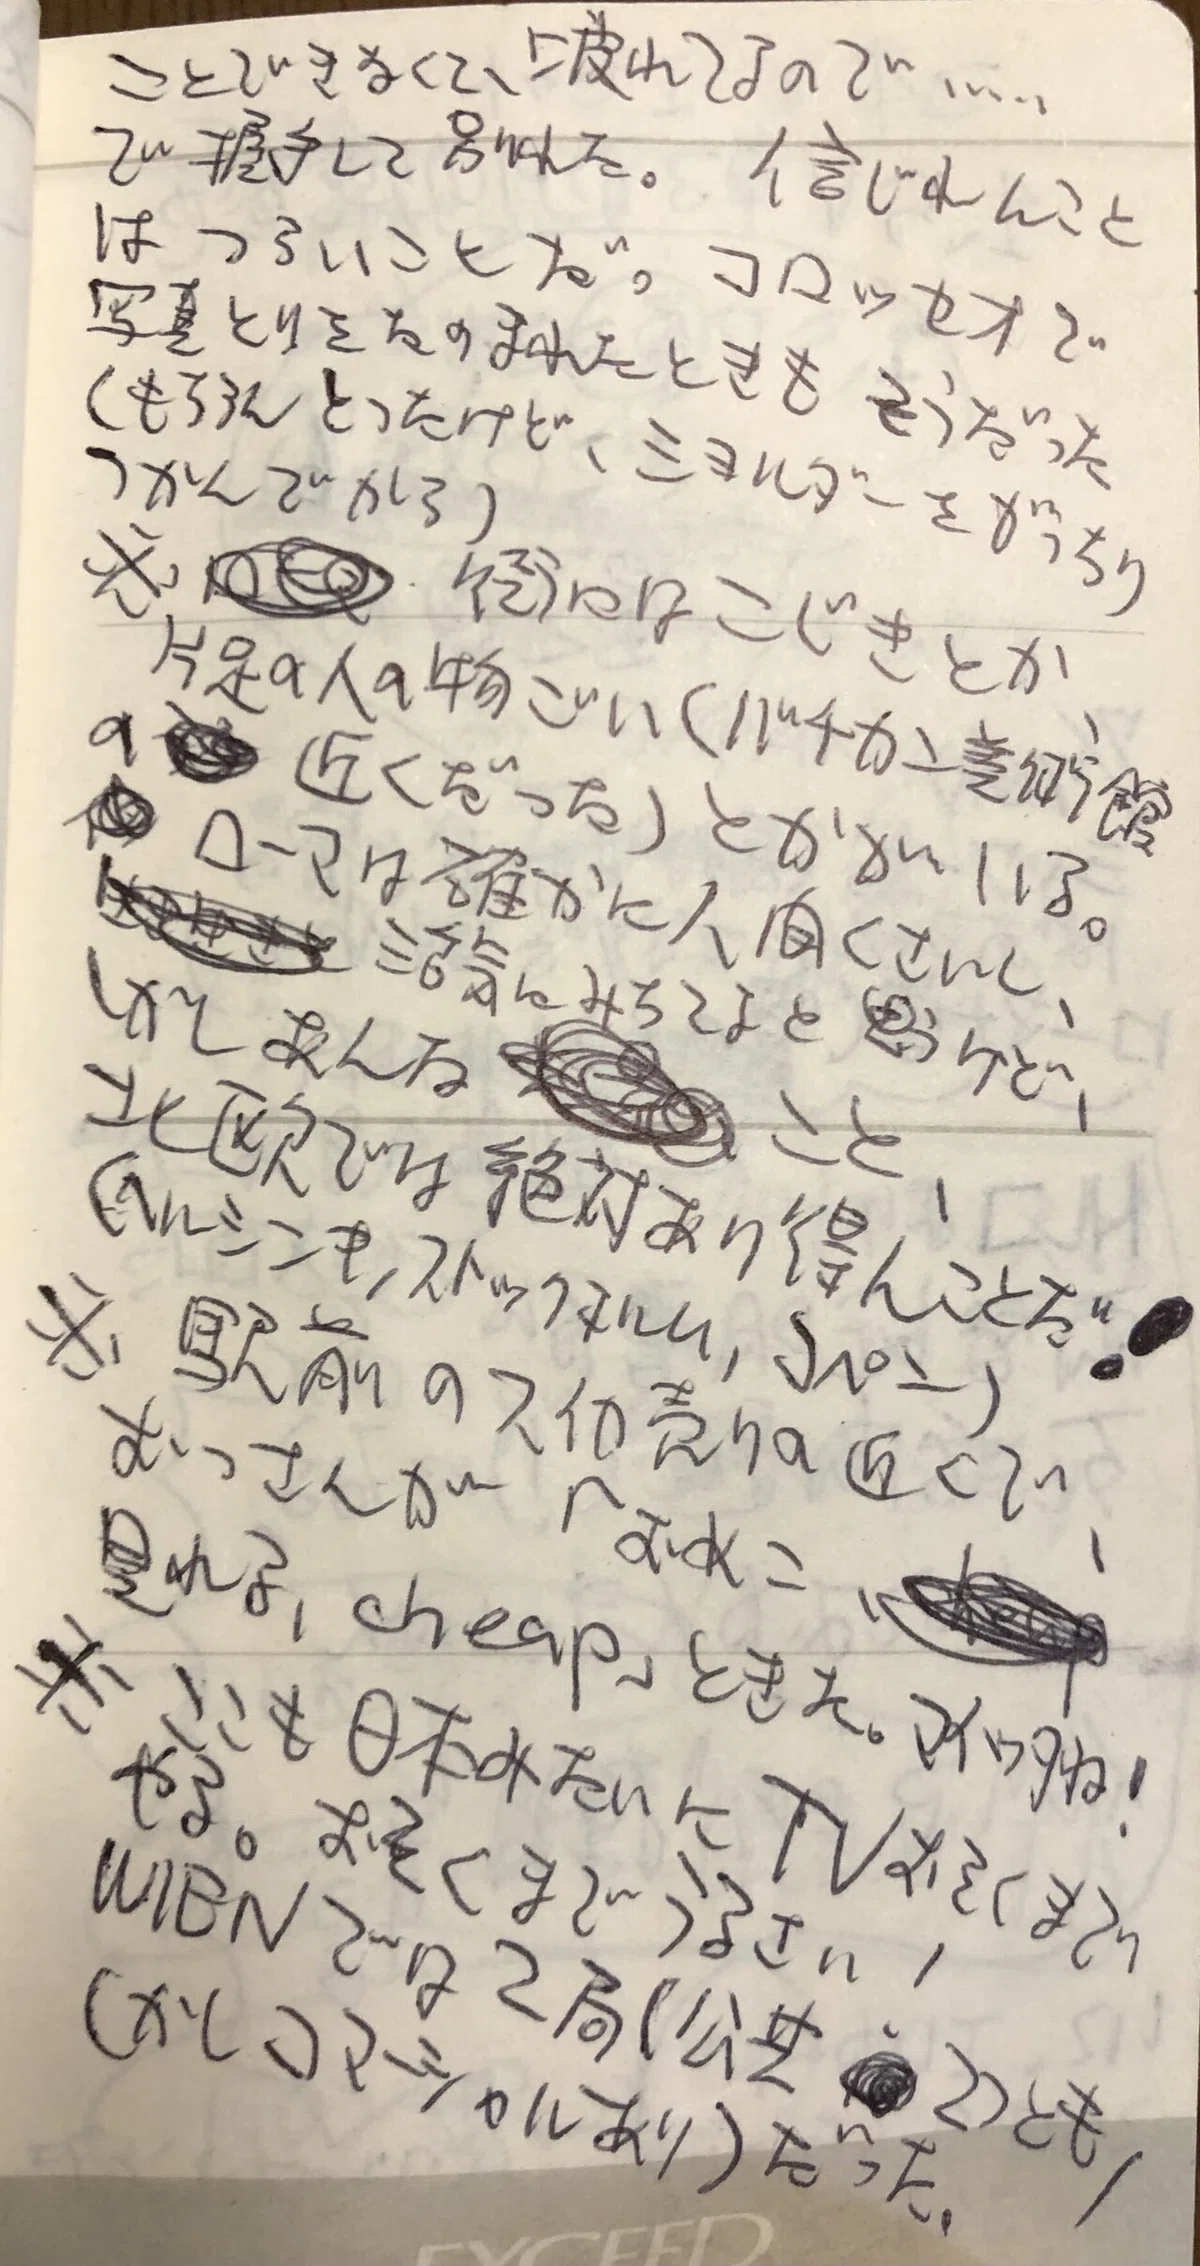 ことできなくて、疲れてるので……
で握手して別れた。 信じれんこと
はつらいことだ。コロッセオで
写真とりをたのまれたときもそうだった
(もちろんとったけど、ショルダーをがっちり
つかんでから)
※ 街にはこじきとか、
片足の人の物ごい(バチカン美術館
の 近くだった)とかがいる。
ローマは確かに人間くさいし、
活気にみちてると思うけど、
しかしあんな こと、
北欧では絶対あり得んことだ!
(ヘルシンキ,ストックホルム,コペン)
※ 駅前のスイカ売りの近くで、
おっさんが「おホニ、
見れる, cheap」ときた。マイッタね!
※ ここも日本みたいにTVおそくまで
やる。おそくまでうるさい!
WIENでは2局(公共 2つとも,
しかしコマーシャルあり)だった。
EXCEED